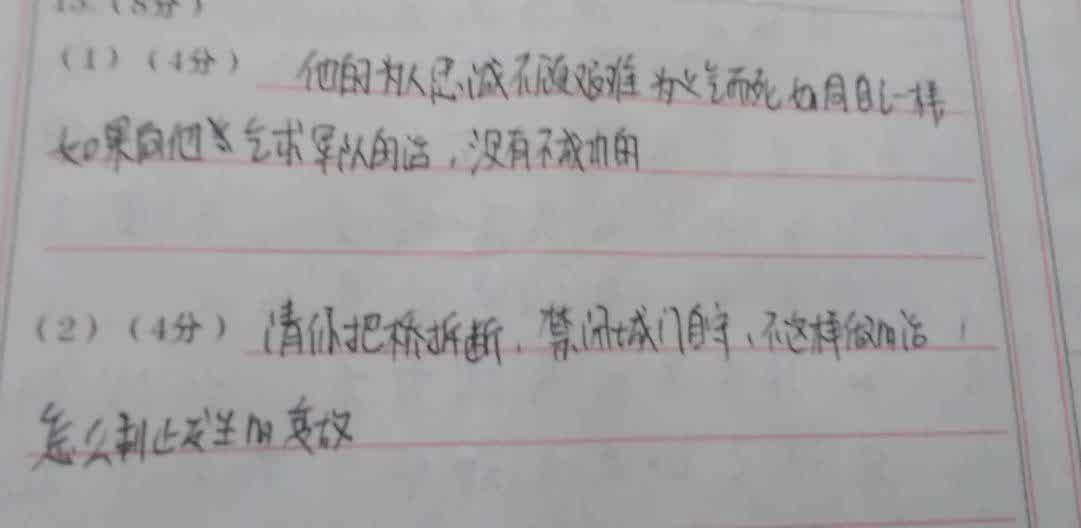 13.（8分）
（1）（4分） 他的为人忠诚不顾艰难 为义气而死如同自己一样
如果向他乞求军队的话，没有不成功的
（2）（4分） 请你把桥拆断，禁闭城门自守，不这样做的话
怎么制止发生的变故